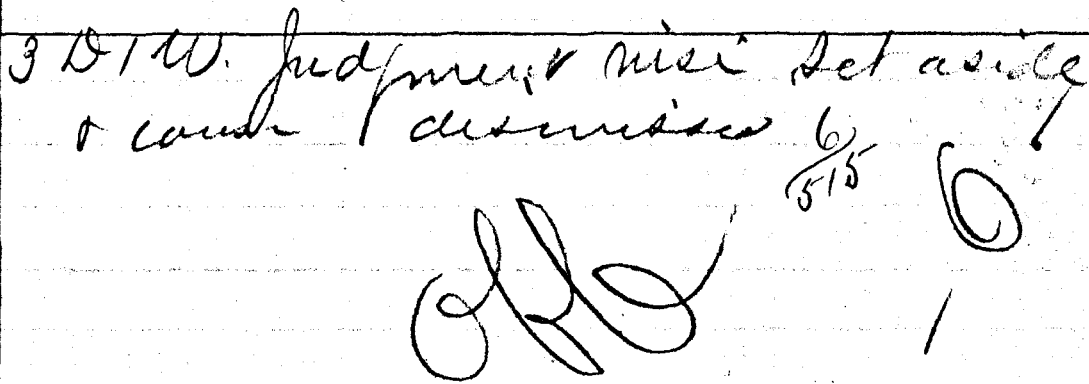 3 D 1 W. Judgment nisi set aside
& cause dismissed 6/515 6